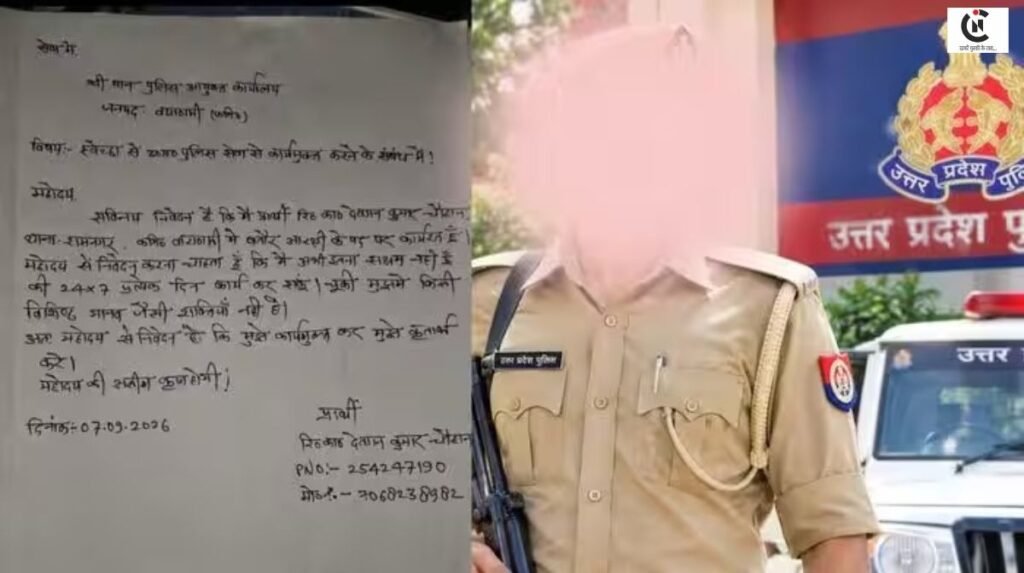 सेवा में,
श्री मान पुलिस आयुक्त कार्यालय
जनपद वाराणसी (कमि०)
विषय:- स्वेच्छा से उ०प्र० पुलिस सेवा से कार्यमुक्त करने के संबंध में!
महोदय
सविनय निवेदन है कि मैं प्रार्थी रि० का० देवान कुमार चौहान
थाना-रामनगर, कमि० वाराणसी में बतौर आरक्षी के पद पर कार्यरत हूँ।
महोदय से निवेदन करना चाहता हूँ कि मैं अभी इतना सक्षम नहीं हूँ
की 24x7 प्रत्येक दिन कार्य कर सकूं। चूकी मुझमे किसी
विशिष्ट मानव जैसी शक्तियाँ नहीं है।
अतः महोदय से निवेदन है कि मुझे कार्यमुक्त कर मुझे कृतार्थ
करे।
महोदय की असीम कृपा होगी!
दिनांक:- 07.09.2026
प्रार्थी
रि० का० देवान कुमार चौहान
PNO:- 254247190
मो०नं.- 7068238982
उत्तर प्रदेश पुलिस
उत्तर प्रदेश पुलि
उत्तर प्रदेश पु
उत्तर